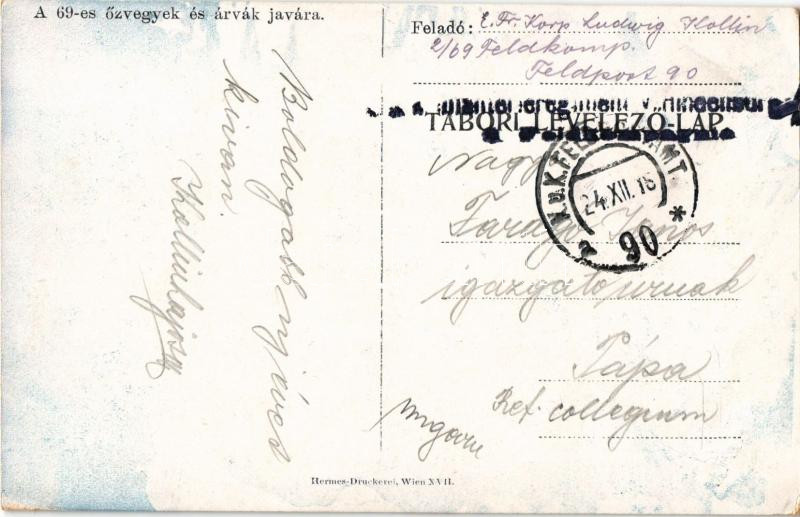 A 69-es őzvegyek és árvák javára.
Boldogabb uj évet
kiván
Kollinlajos
Feladó: E. Fr. Korp Ludwig Kollin
2/69 Feldkomp.
Feldpost 90
TÁBORI LEVELEZŐ-LAP
K.u.K. FELDPOSTAMT
24.XII.15
a 90 *
Nagys
Faragó János
igazgató urnak
Pápa
Ref. collegium
Ungarn
Hermes-Druckerei, Wien XVII.